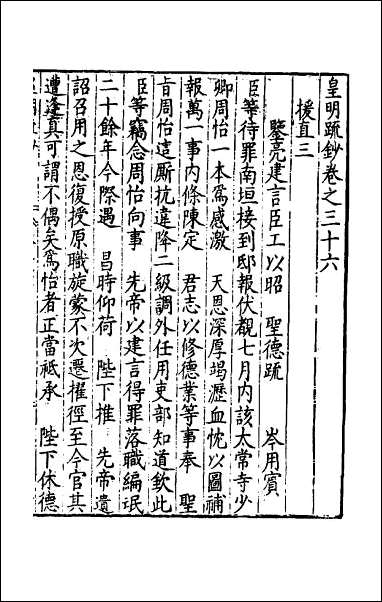 皇明疏鈔卷之三十六
援直三
鑒亮建言臣工以昭 聖德疏 岑用賓
臣等待罪南垣接到邸報伏覩七月内該太常寺少
卿周怡一本爲感激 天恩深厚竭瀝血忱以圖補
報萬一事内條陳定 君志以修德業等事奉 聖
旨周怡這厮抗違降二級調外任用吏部知道欽此
臣等竊念周怡向事 先帝以建言得罪落職編氓
二十餘年今際遇 昌時仰荷 陛下推 先帝遺
詔召用之恩復授原職旋蒙不次遷擢徑至今官其
遭逢真可謂不偶矣爲怡者正當祗承 陛下休德